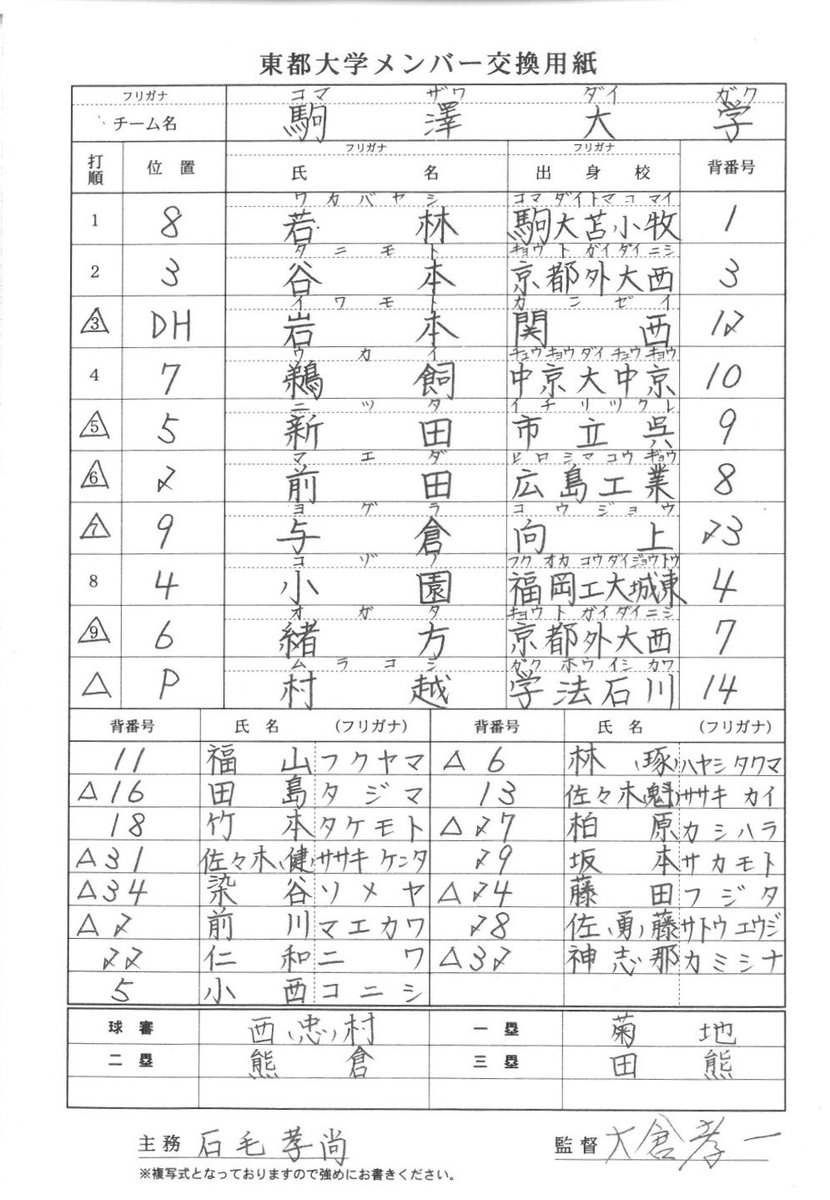 東都大学メンバー交換用紙
フリガナ コマ ザワ ダイ ガク
チーム名 駒澤大学
打順 位置 フリガナ 氏名 フリガナ 出身校 背番号
ワカバヤシ コマダイトマコマイ
1 8 若林 駒大苫小牧 1
タニモト キョウトガイダイニシ
2 3 谷本 京都外大西 3
イワモト カンゼイ
△3 DH 岩本 関西 12
ウカイ チュウキョウダイチュウキョウ
4 7 鵜飼 中京大中京 10
ニッタ イチリツクレ
△5 5 新田 市立呉 9
マエダ ヒロシマコウギョウ
△6 2 前田 広島工業 8
ヨゲラ コウジョウ
△7 9 与倉 向上 23
コゾノ フクオカコウダイジョウトウ
8 4 小園 福岡工大城東 4
オガタ キョウトガイダイニシ
△9 6 緒方 京都外大西 7
ムラコシ ガクホウイシカワ
△ P 村越 学法石川 14
背番号 氏名 (フリガナ) 背番号 氏名 (フリガナ)
11 福山 フクヤマ △6 林(琢) ハヤシタクマ
△16 田島 タジマ 13 佐々木(魁) ササキカイ
18 竹本 タケモト △27 柏原 カシハラ
△31 佐々木(健) ササキケンタ 29 坂本 サカモト
△34 染谷 ソメヤ △24 藤田 フジタ
△2 前川 マエカワ 28 佐(勇)藤 サトウユウジ
22 仁和 ニワ △32 神志那 カミシナ
5 小西 コニシ
球審 西(忠)村 一塁 菊地
二塁 熊倉 三塁 田熊
主務 石毛孝尚 監督 大倉孝一
※複写式となっておりますので強めにお書きください。